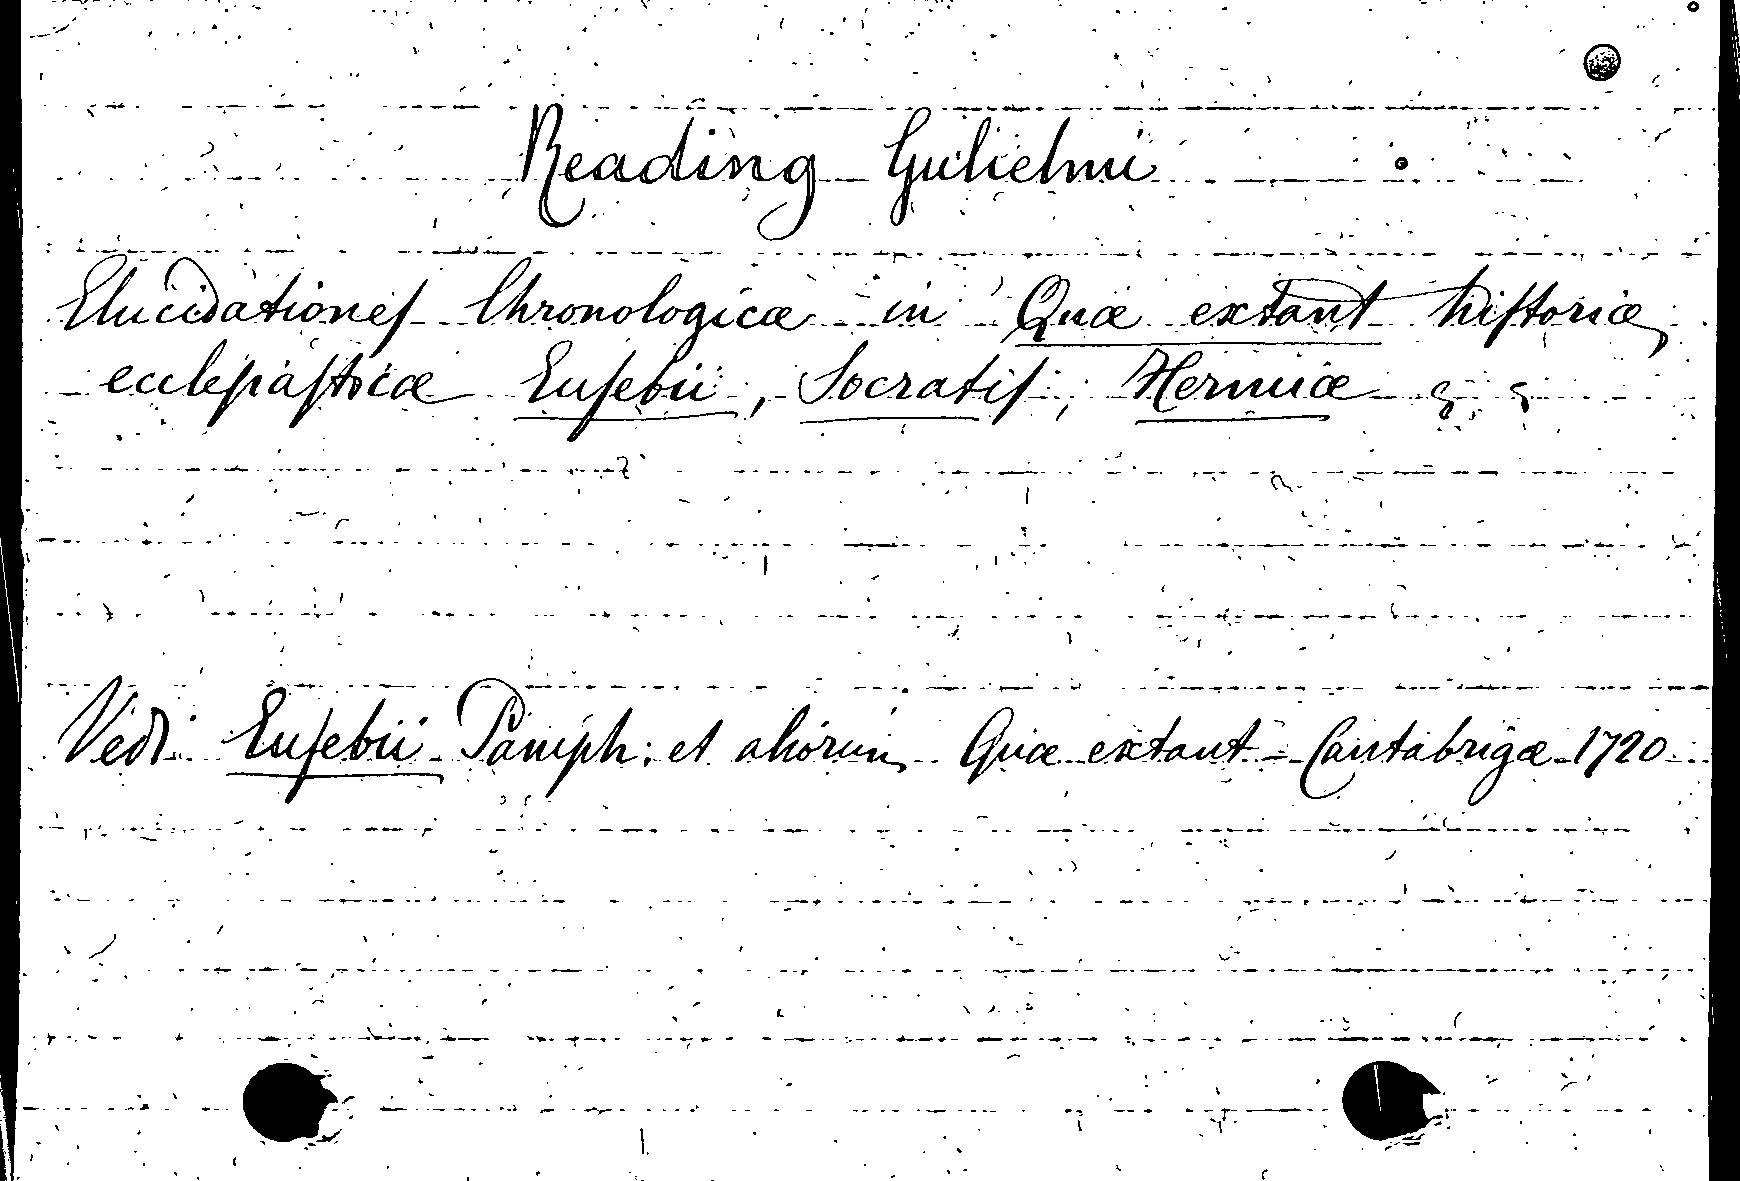 Reading Gulielmi
Elucidationes Chronologicæ in Quæ extant historiæ
ecclesiasticæ Eusebii, Socratis, Hermiæ
Vedi Eusebii Pamph: et aliorum Quæ extant - Cantabrigæ 1720